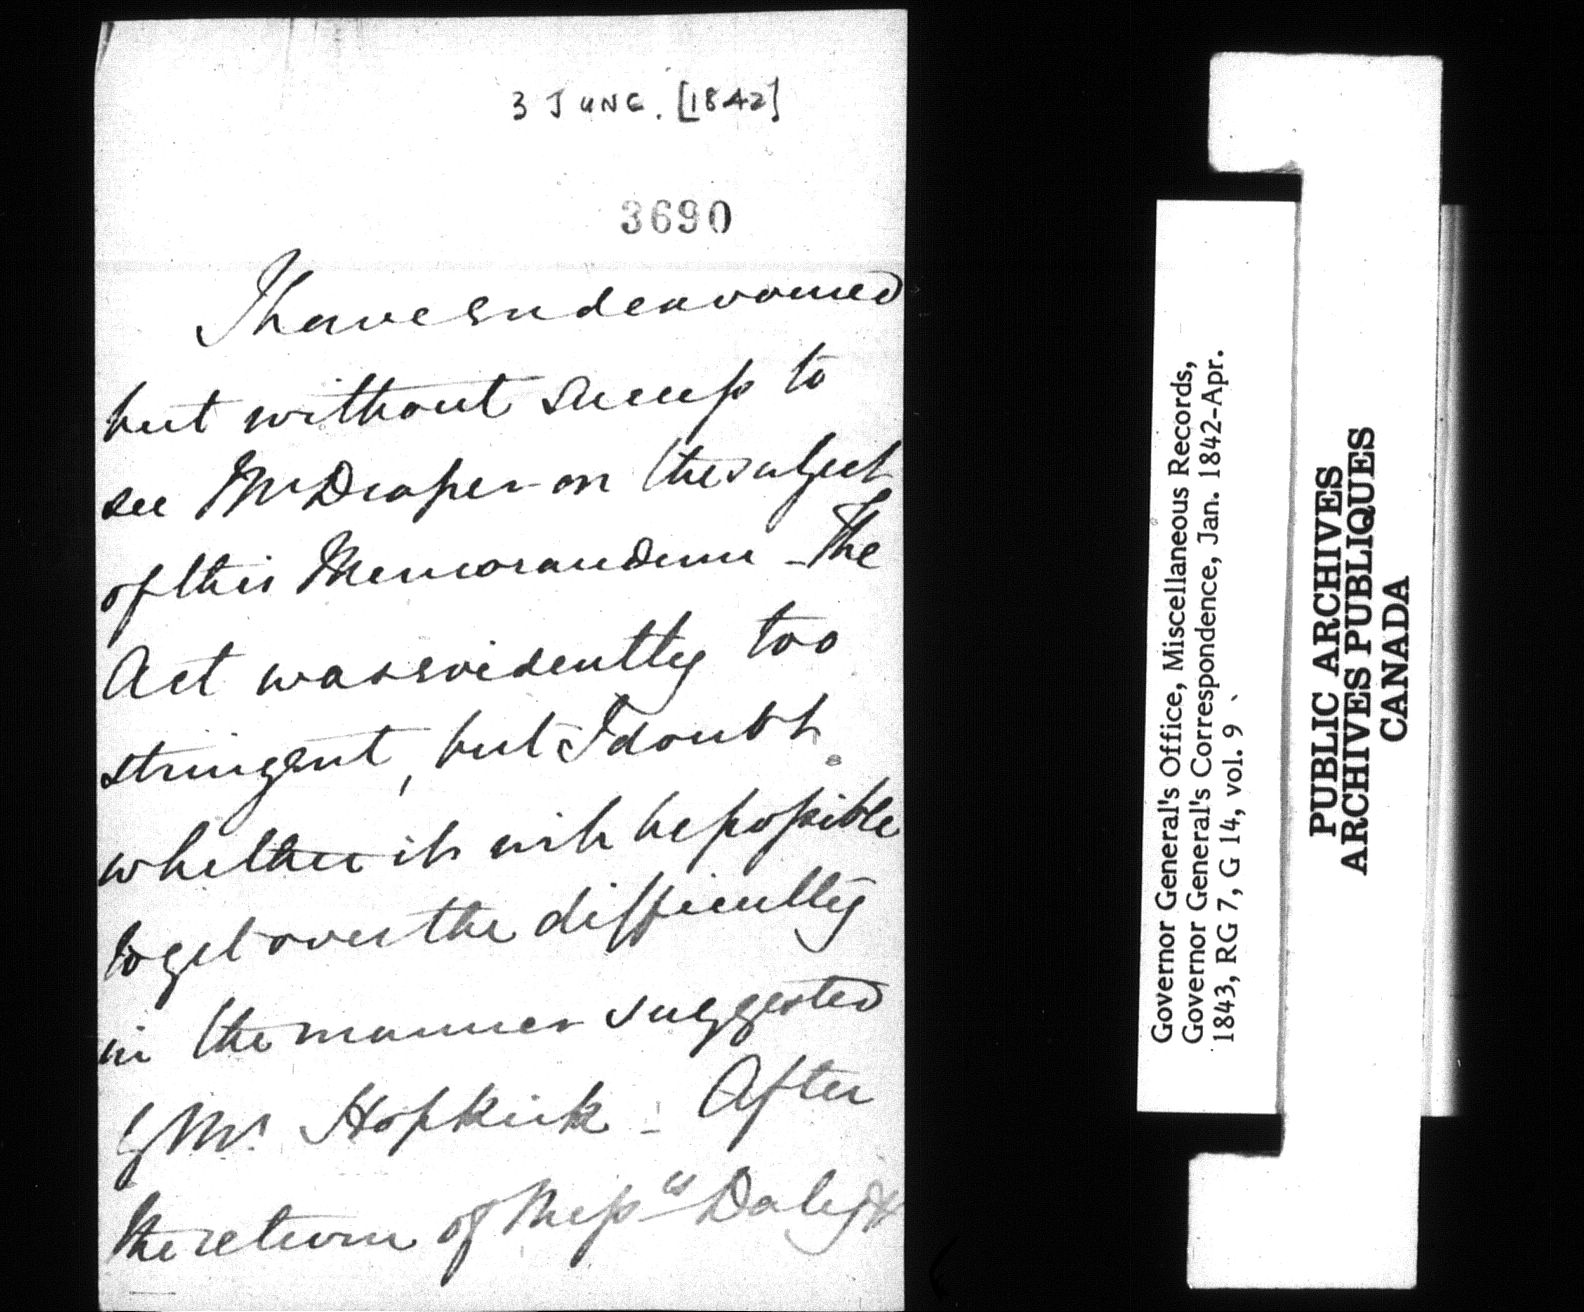 3 JUNE. [1842]
3690
I have endeavoured
but without success to
see Mr Draper on the subject
of this Memorandum - The
Act was evidently too
stringent, but I doubt
whether it will be possible
to get over the difficulty
in the manner suggested
by Mr. Hopkirk - After
the return of Messrs Daly &
Governor General's Office, Miscellaneous Records,
Governor General's Correspondence, Jan. 1842-Apr.
1843, RG 7, G 14, vol. 9
PUBLIC ARCHIVES
ARCHIVES PUBLIQUES
CANADA